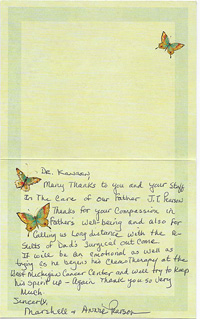 Dr. 
Many Thanks to you and your Staff
In The Care of our Father J.T. Pearson
Thanks for your Compassion in
Father's Well-being and also for
Calling us Long distance with the re-
sults of Dad's Surgical out come.
It will be an emotional as well as
trying as he begins his ChemoTherapy at the
West Michigan Cancer Center and we'll try to keep
his spirit up - Again Thank you so Very
Much.
Sincerely,
Marshall & Annie Pearson